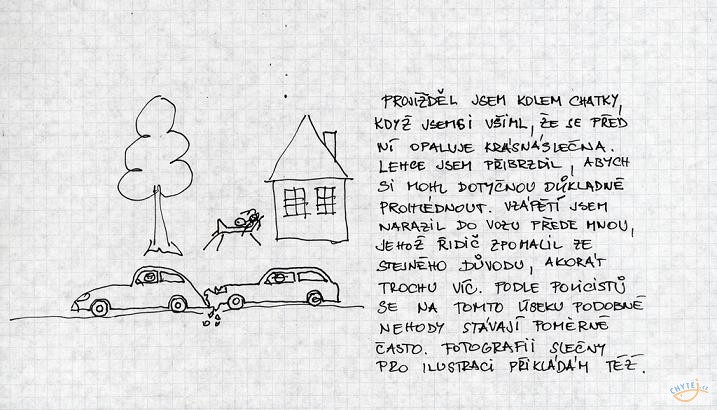 PROJÍŽDĚL JSEM KOLEM CHATKY,
KDYŽ JSEM SI VŠIML, ŽE SE PŘED
NÍ OPALUJE KRÁSNÁ SLEČNA.
LEHCE JSEM PŘIBRZDIL, ABYCH
SI MOHL DOTYČNOU DŮKLADNĚ
PROHLÉDNOUT. VZÁPĚTÍ JSEM
NARAZIL DO VOZU PŘEDE MNOU,
JEHOŽ ŘIDIČ ZPOMALIL ZE
STEJNÉHO DŮVODU, AKORÁT
TROCHU VÍC. PODLE POLICISTŮ
SE NA TOMTO ÚSEKU PODOBNÉ
NEHODY STÁVAJÍ POMĚRNĚ
ČASTO. FOTOGRAFII SLEČNY
PRO ILUSTRACI PŘIKLÁDÁM TÉŽ.
CHYTEJ.CZ